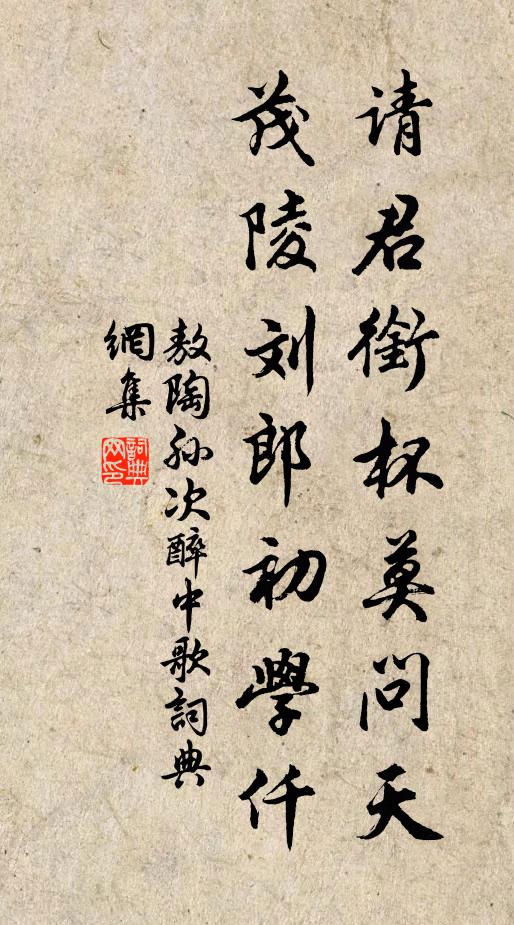 请君銜杯莫问天
茂陵刘郎初學仟
敖陶孙次醉中歌詞典
網集
詞典网印